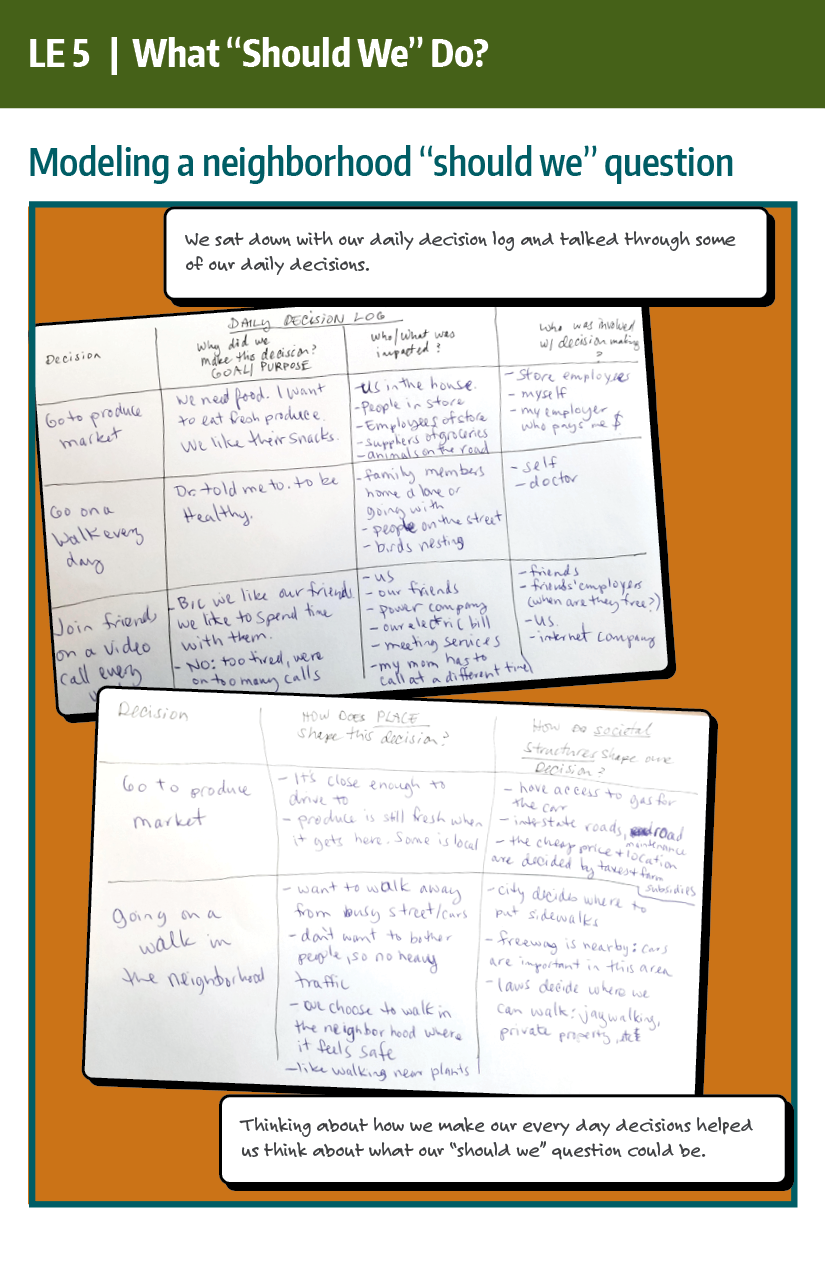 LE 5 | What “Should We” Do?
Modeling a neighborhood “should we” question
We sat down with our daily decision log and talked through some
of our daily decisions.
DAILY DECISION LOG
Decision
Why did we
make this decision?
GOAL/ PURPOSE
Who/What was
impacted?
Who was involved
w/ decision making
?
Go to produce
market
We need food. I want
to eat fresh produce.
We like their snacks.
-us in the house.
-People in store
-Employees of store
-suppliers of groceries
-animals on the road
- Store employees
- myself
- my employer
who pays me $
Go on a
walk every
day
Dr. told me to. to be
Healthy.
-family members
home alone or
going with
- people on the street
- birds nesting
- self
- doctor
Join friends
on a video
call every
- B/c we like our friends
we like to spend time
with them.
- NO: too tired, were
on too many calls
- us
- our friends
- power company
- our electric bill
- meeting services
- my mom has to
call at a different time
- friends
- friends' employers
(when are they free?)
- us.
- internet company
Decision
HOW DOES PLACE
shape this decision?
How do societal
structures shape our
Decision?
Go to produce
market
- It's close enough to
drive to
- produce is still fresh when
it gets here. Some is local
- have access to gas for
the car
- interstate roads, road
maintenance
- the cheap price + location
are decided by taxes + farm
subsidies
going on a
walk in
the neighborhood
- want to walk away
from busy street/cars
- don't want to bother
people, so no heavy
traffic
- we choose to walk in
the neighborhood where
it feels safe
- like walking near plants
- city decides where to
put sidewalks
- freeway is nearby: cars
are important in this area
- laws decide where we
can walk: jaywalking,
private property, etc
Thinking about how we make our every day decisions helped
us think about what our “should we” question could be.